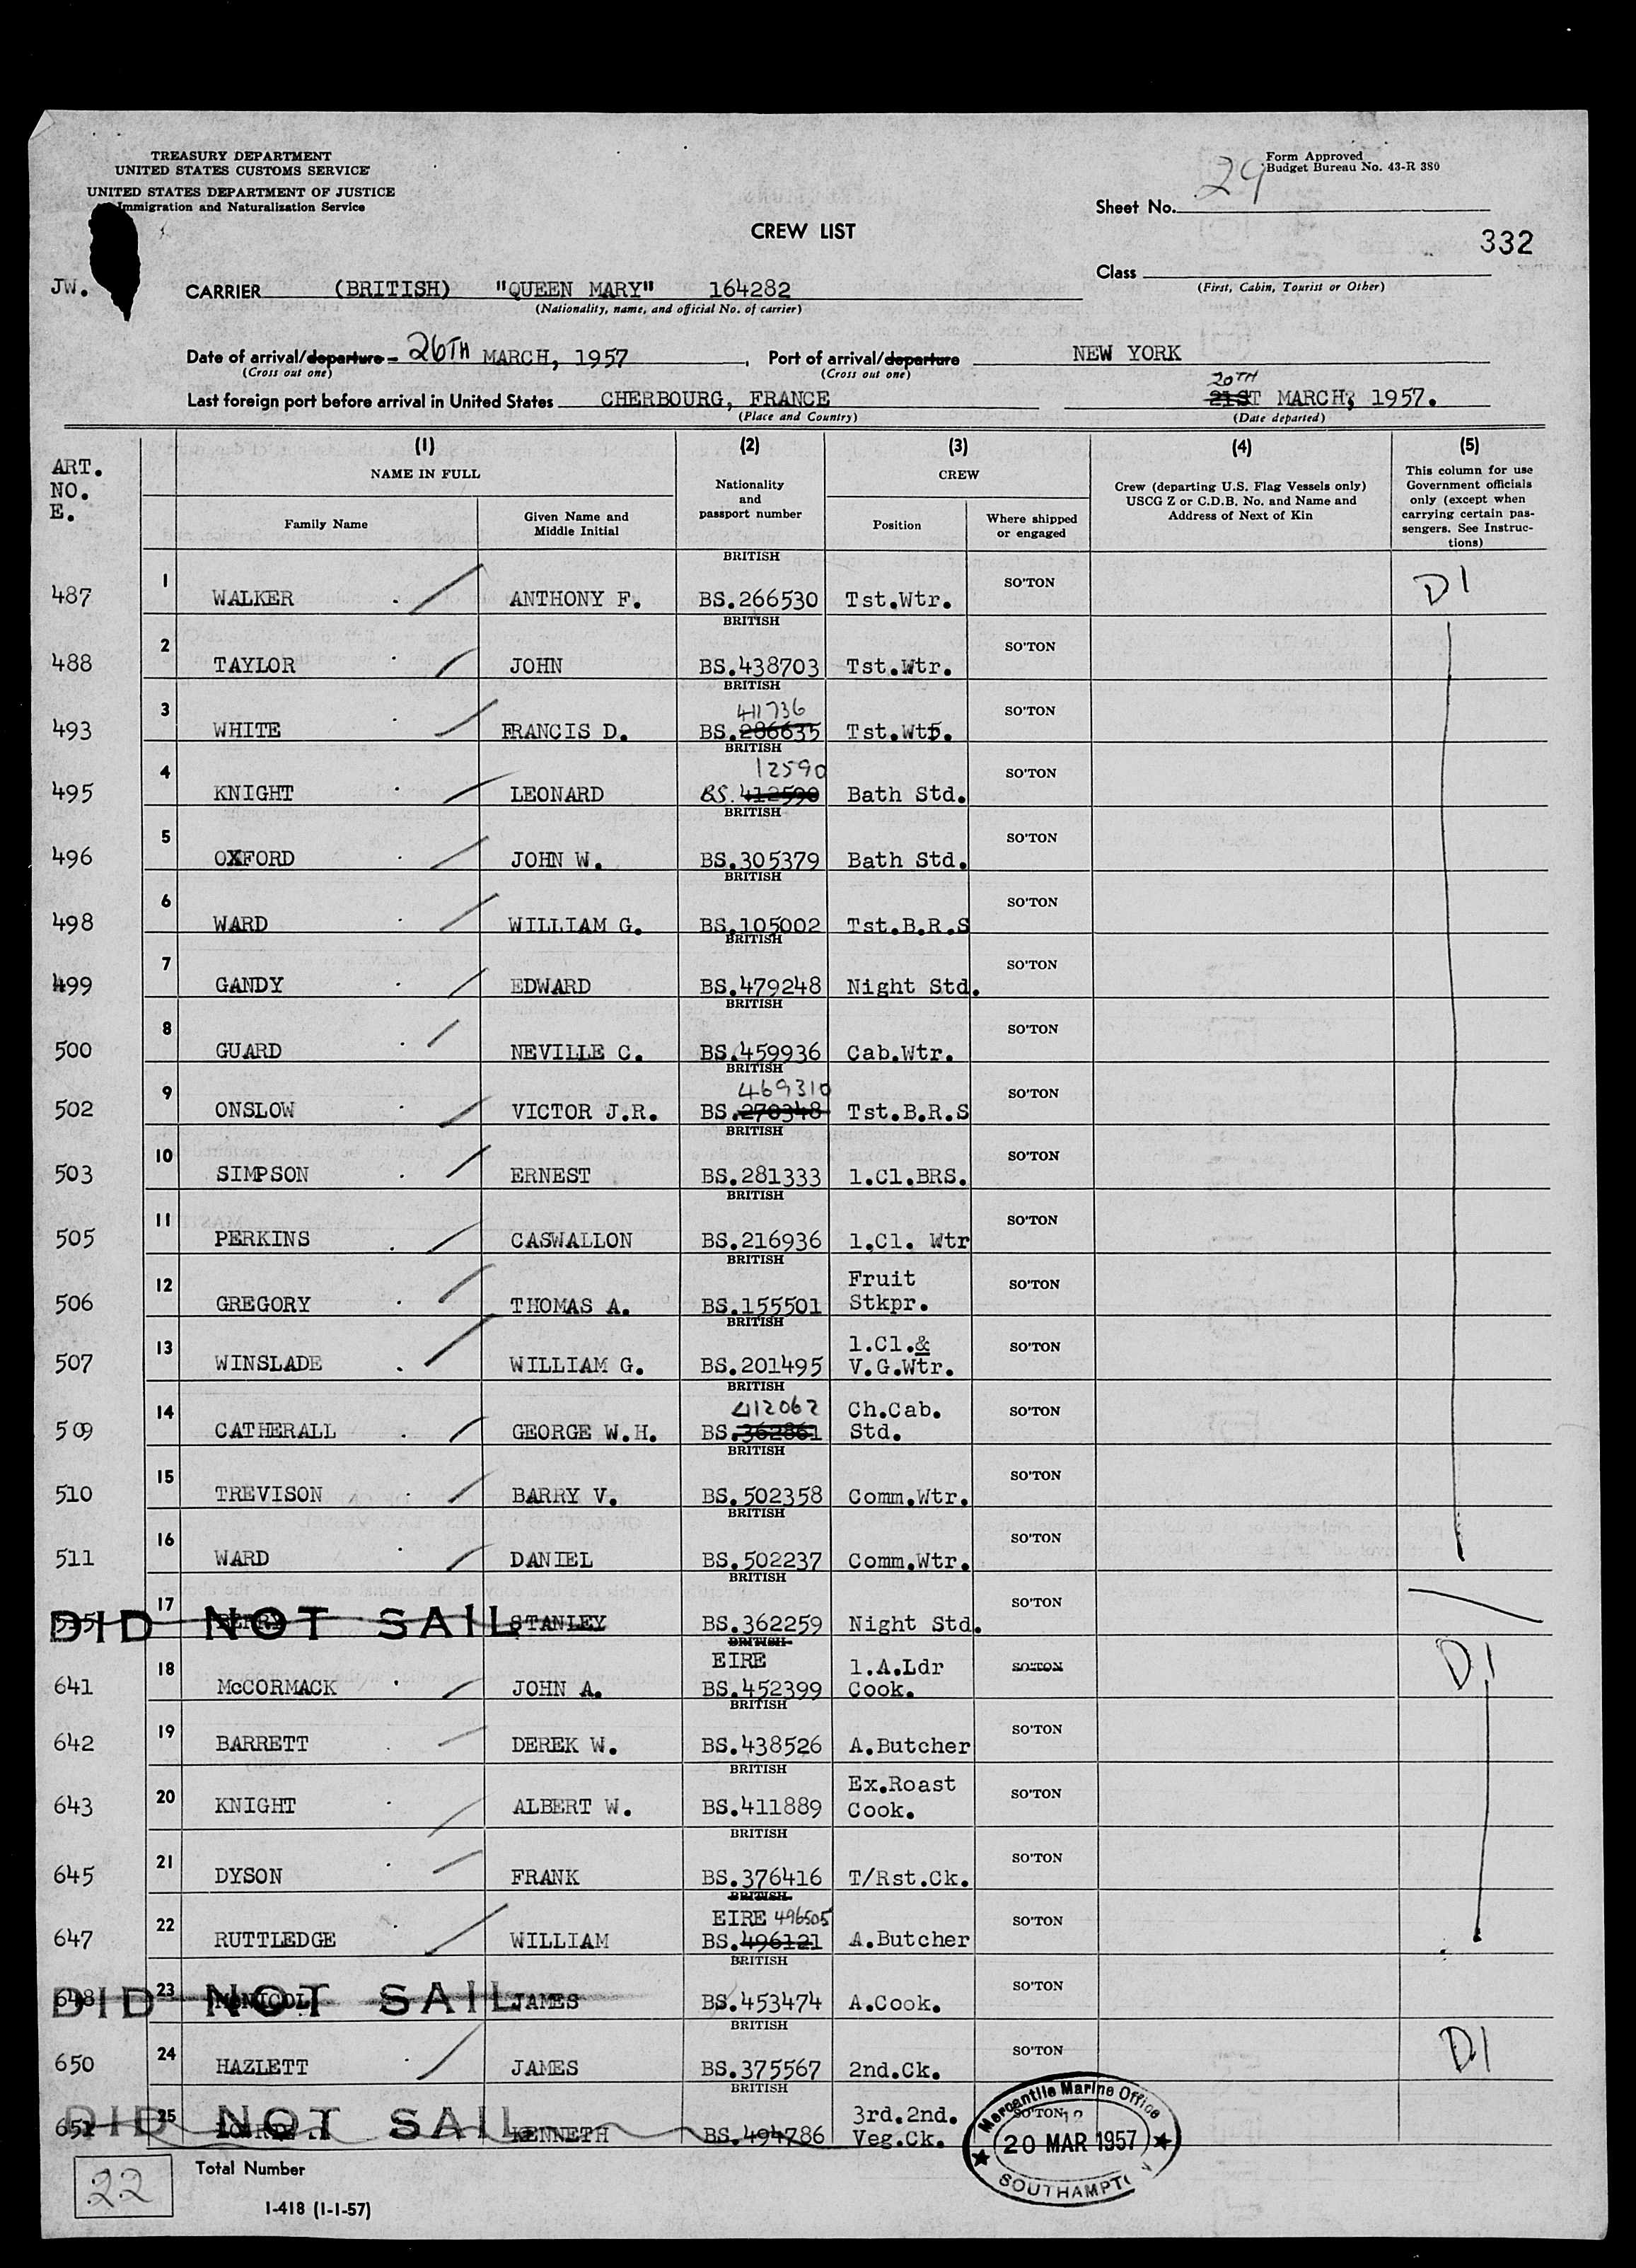 TREASURY DEPARTMENT
UNITED STATES CUSTOMS SERVICE
UNITED STATES DEPARTMENT OF JUSTICE
Immigration and Naturalization Service
Form Approved
Budget Bureau No. 43-R 380
Sheet No. 29
CREW LIST
332
Class
(First, Cabin, Tourist or Other)
JW.
CARRIER (BRITISH) "QUEEN MARY" 164282
(Nationality, name, and official No. of carrier)
Date of arrival/departure - 26TH MARCH, 1957, Port of arrival/departure NEW YORK
(Cross out one) (Cross out one)
20TH
Last foreign port before arrival in United States CHERBOURG, FRANCE 21ST MARCH, 1957.
(Place and Country) (Date departed)
ART. NO. E.
(1) (2) (3) (4) (5)
NAME IN FULL
Family Name
Given Name and Middle Initial
Nationality and passport number
CREW
Position
Where shipped or engaged
Crew (departing U.S. Flag Vessels only) USCG Z or C.D.B. No. and Name and Address of Next of Kin
This column for use Government officials only (except when carrying certain passengers. See Instructions)
487 1 WALKER ANTHONY F. BRITISH BS.266530 Tst.Wtr. SO'TON D1
488 2 TAYLOR JOHN BRITISH BS.438703 Tst.Wtr. SO'TON
493 3 WHITE FRANCIS D. BRITISH 411736 BS.286635 Tst.Wt5. SO'TON
495 4 KNIGHT LEONARD BRITISH 12590 BS.412590 Bath Std. SO'TON
496 5 OXFORD JOHN W. BRITISH BS.305379 Bath Std. SO'TON
498 6 WARD WILLIAM G. BRITISH BS.105002 Tst.B.R.S SO'TON
499 7 GANDY EDWARD BRITISH BS.479248 Night Std. SO'TON
500 8 GUARD NEVILLE C. BRITISH BS.459936 Cab.Wtr. SO'TON
502 9 ONSLOW VICTOR J.R. BRITISH 469310 BS.270348 Tst.B.R.S SO'TON
503 10 SIMPSON ERNEST BRITISH BS.281333 1.Cl.BRS. SO'TON
505 11 PERKINS CASWALLON BRITISH BS.216936 1.Cl. Wtr SO'TON
506 12 GREGORY THOMAS A. BRITISH BS.155501 Fruit Stkpr. SO'TON
507 13 WINSLADE WILLIAM G. BRITISH BS.201495 1.Cl.& V.G.Wtr. SO'TON
509 14 CATHERALL GEORGE W.H. BRITISH 412062 BS.362861 Ch.Cab. Std. SO'TON
510 15 TREVISON BARRY V. BRITISH BS.502358 Comm.Wtr. SO'TON
511 16 WARD DANIEL BRITISH BS.502237 Comm.Wtr. SO'TON
DID NOT SAIL 17 STANLEY BRITISH BS.362259 Night Std. SO'TON
641 18 McCORMACK JOHN A. BRITISH EIRE BS.452399 1.A.Ldr Cook. SO'TON D1
642 19 BARRETT DEREK W. BRITISH BS.438526 A.Butcher SO'TON
643 20 KNIGHT ALBERT W. BRITISH BS.411889 Ex.Roast Cook. SO'TON
645 21 DYSON FRANK BRITISH BS.376416 T/Rst.Ck. SO'TON
647 22 RUTTLEDGE WILLIAM BRITISH EIRE 496505 BS.496121 A.Butcher SO'TON
648 DID NOT SAIL 23 JAMES BRITISH BS.453474 A.Cook. SO'TON
650 24 HAZLETT JAMES BRITISH BS.375567 2nd.Ck. SO'TON D1
651 DID NOT SAIL 25 KENNETH BRITISH BS.494786 3rd.2nd. Veg.Ck. SO'TON
Mercantile Marine Office
20 MAR 1957
SOUTHAMPTON
22 Total Number
I-418 (1-1-57)